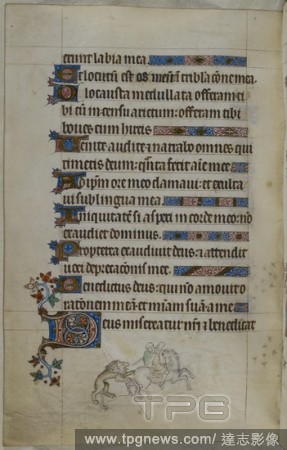 erunt labia mea.
Et locutū est os meū in tribulatione mea.
Holocausta medullata offeram ti
bi cū incensu arietum: offeram tibi
boues cum hircis
Uenite audite et narrabo omnes qui
timetis deum: quāta fecit aīe mee
Ad ip̄m ore meo clamaui: et exulta
ui sub lingua mea.
Iniquitatē si aspexi in corde meo: nō
exaudiet dominus.
Propterea exaudiuit deus: et attendit
uoci deprecacōnis mee.
Benedictus deus: qui nō amouit o
rationem meā et miam̄ suā a me
Deus misereatur nr̄i et benedicat
TPG
www.tpgnews.com / 達志影像